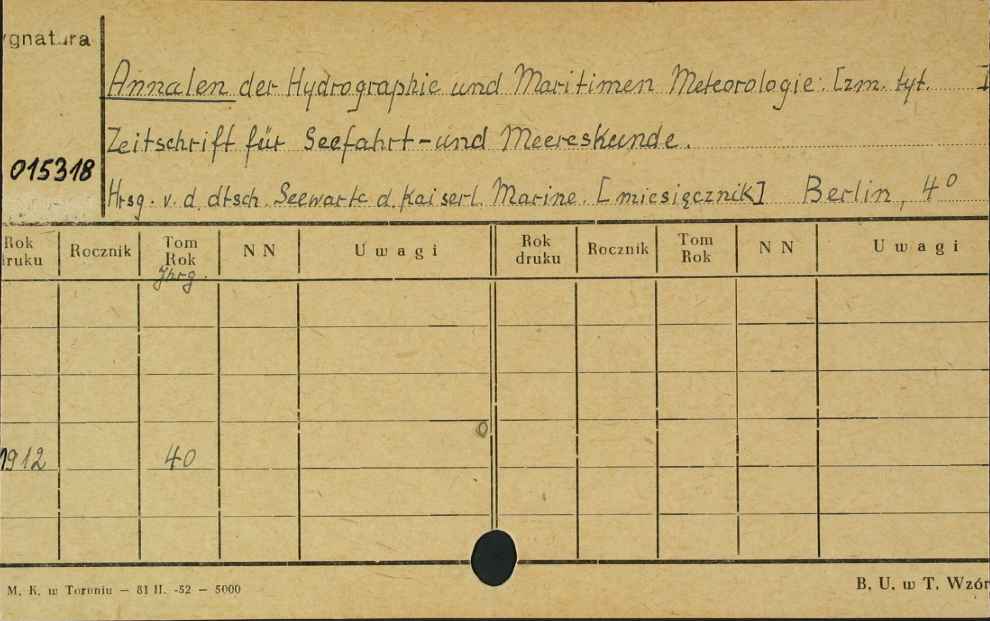 ygnatura
Annalen der Hydrographie und Maritimen Meteorologie. [zm. tyt.
Zeitschrift für Seefahrt- und Meereskunde.
015318
Hrsg. v. d. dtsch. Seewarte d. Kaiserl. Marine. [miesięcznik] Berlin, 4°
Rok druku Rocznik Tom Rok NN Uwagi Rok druku Rocznik Tom Rok NN Uwagi
Jhrg.
1912 40
M. K. w Toruniu — 81 II. -52 — 5000
B. U. w T. Wzór